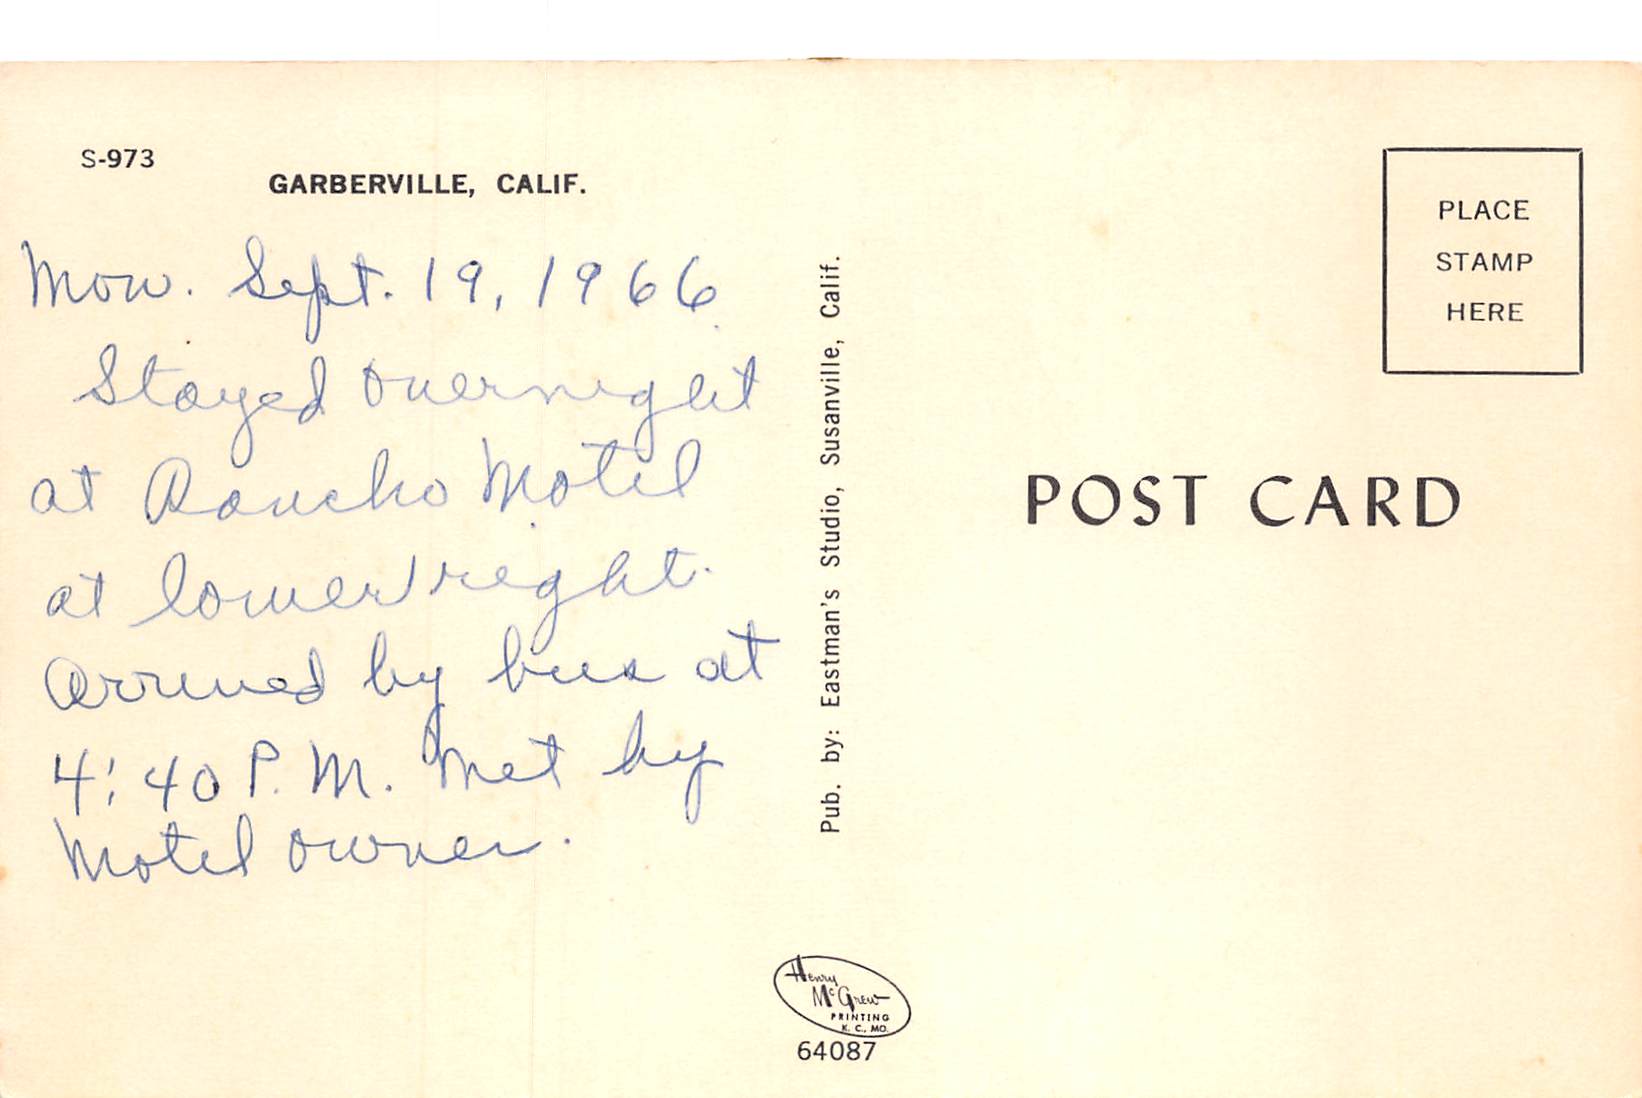 S-973
GARBERVILLE, CALIF.
Mon. Sept. 19, 1966
Stayed overnight
at Rancho Motel
at lower right.
Arrived by bus at
4:40 P.M. Met by
Motel owner.
Pub. by: Eastman's Studio, Susanville, Calif.
PLACE
STAMP
HERE
POST CARD
Henry
McGrew
PRINTING
K. C., MO.
64087